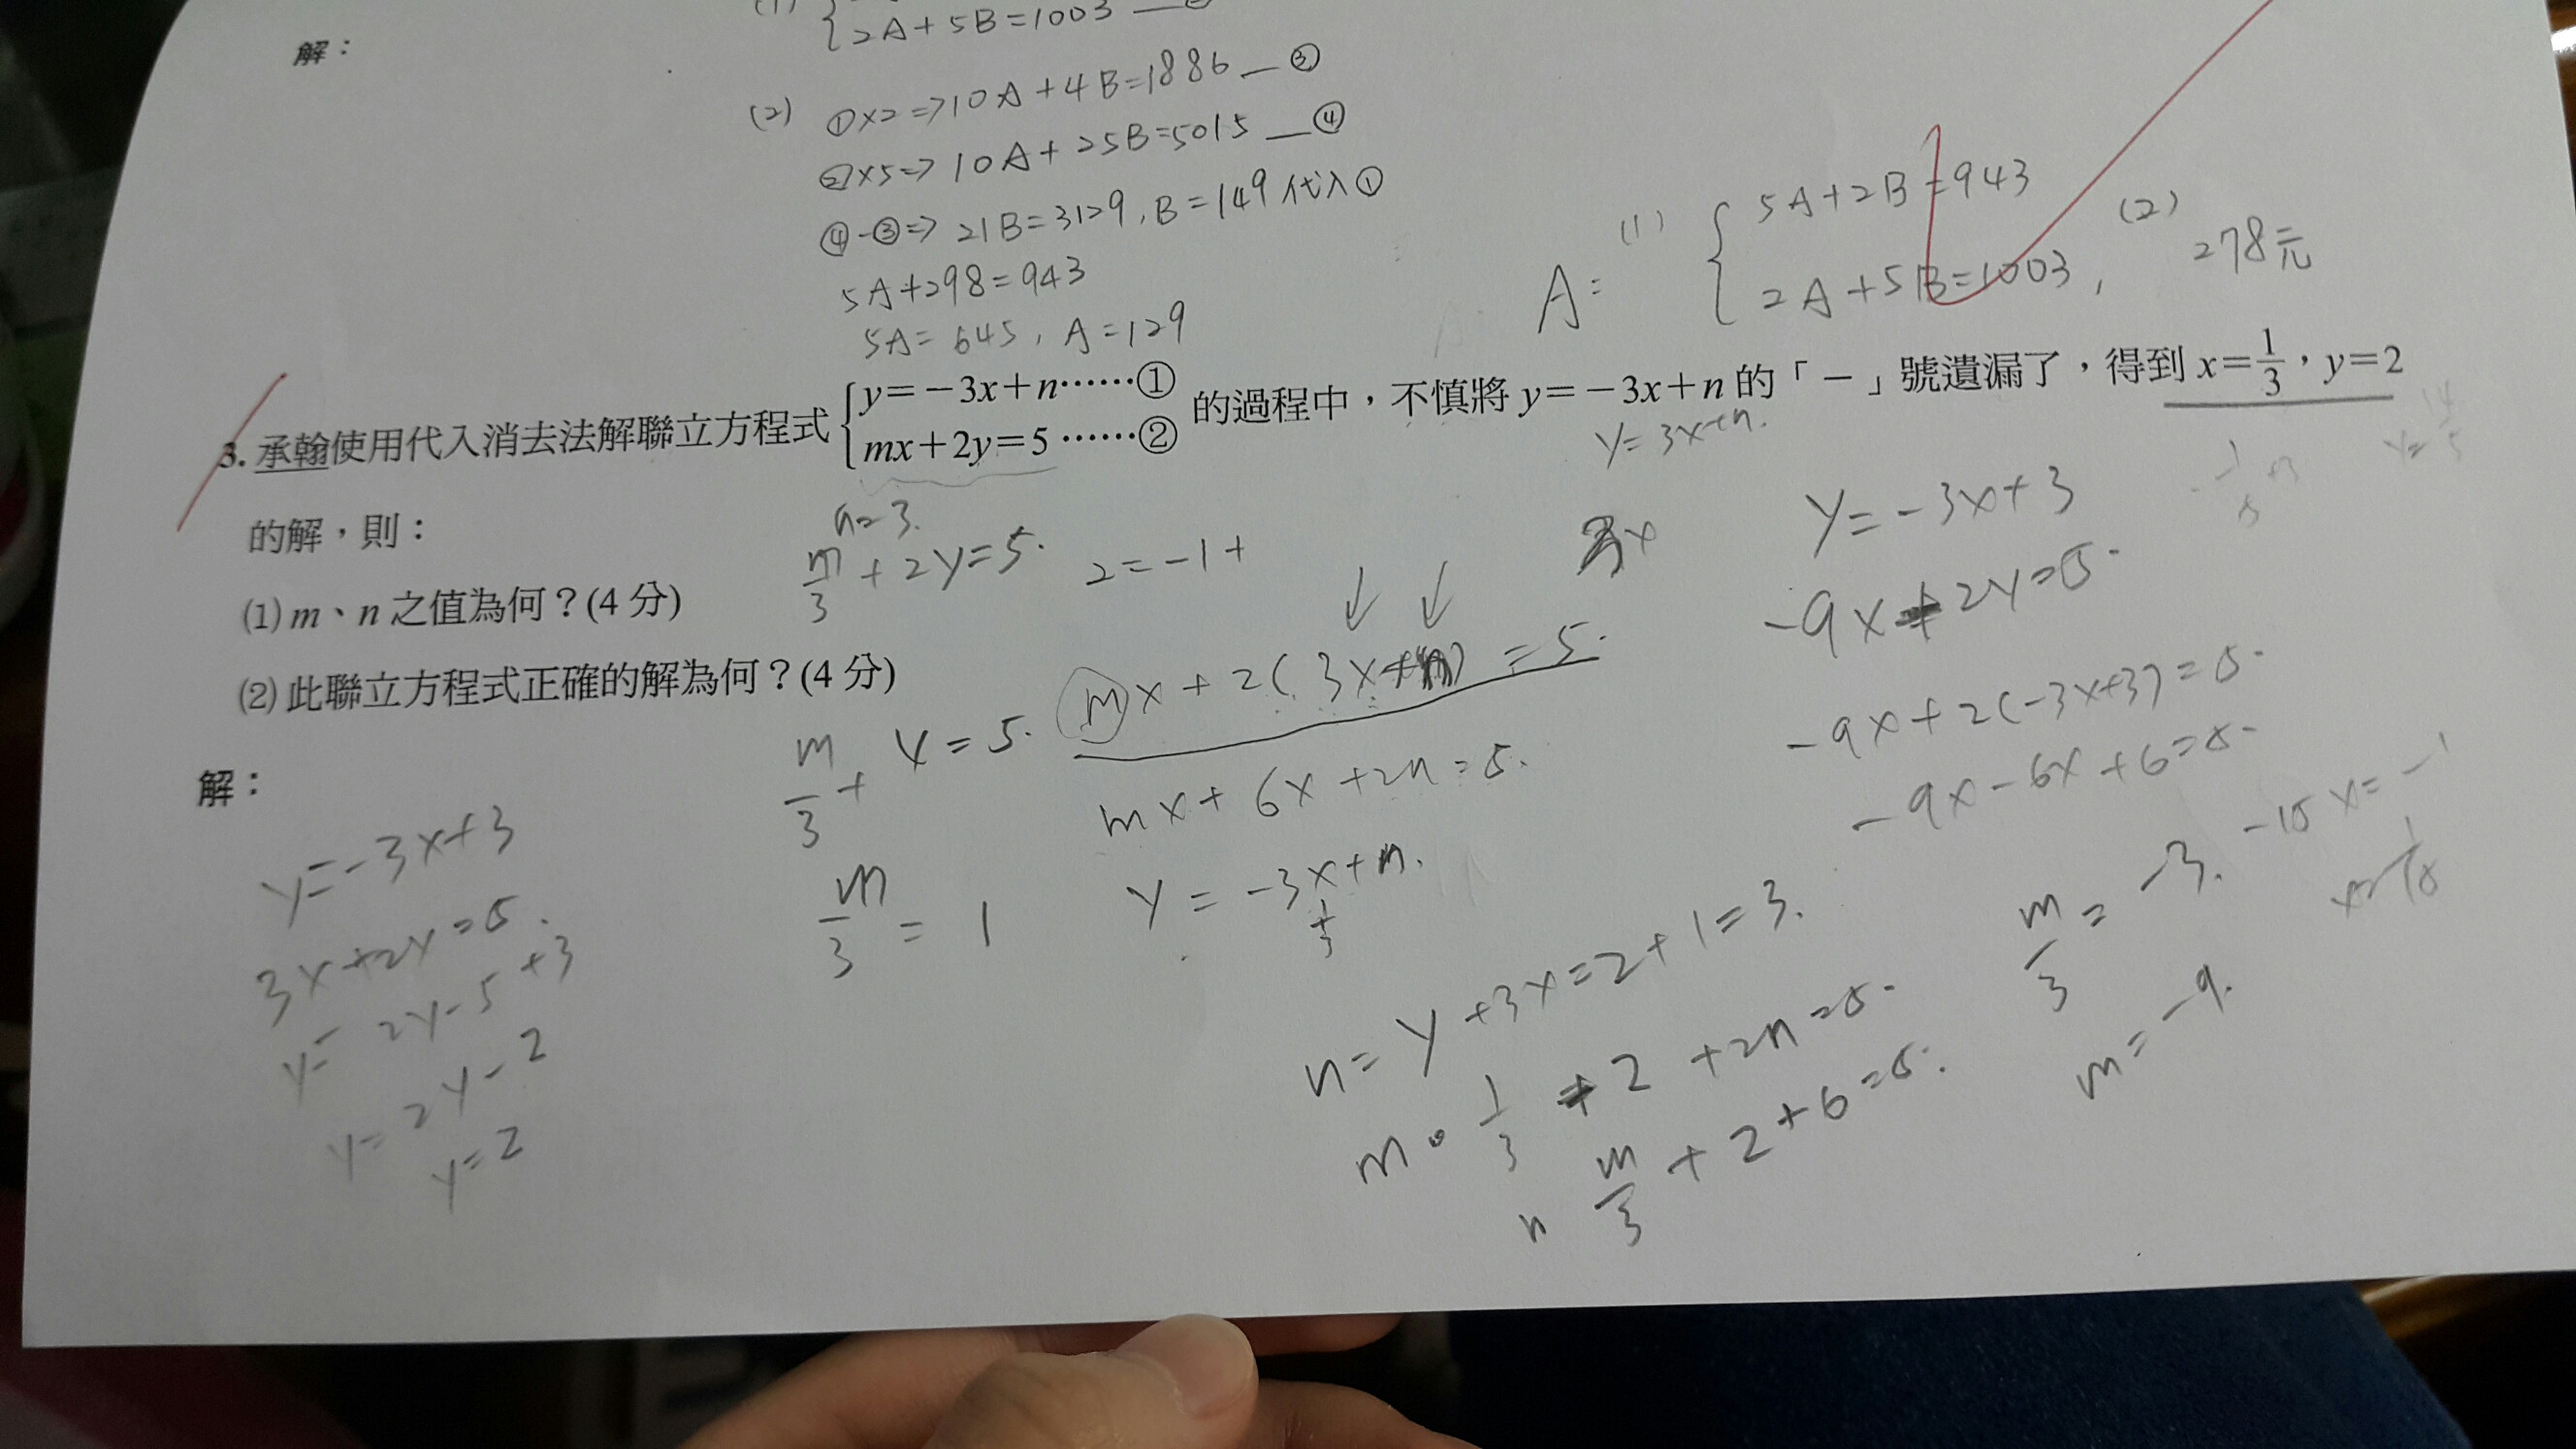 解：
(1) {2A+5B=1003 —②
(2) ①×2=>10A+4B=1886 —③
②×5=>10A+25B=5015 —④
④-③=> 21B=3129, B=149代入①
5A+298=943
5A=645, A=129
A: (1) {5A+2B=943
2A+5B=1003,
(2) 278元
3. 承翰使用代入消去法解聯立方程式{y=-3x+n……①
mx+2y=5……②
的過程中，不慎將y=-3x+n的「-」號遺漏了，得到x=1/3，y=2
的解，則：
(1) m、n之值為何？(4分)
(2) 此聯立方程式正確的解為何？(4分)
解：
y=3x+n.
n=3.
m/3+2y=5.
2=-1+
mx+2(3x+n)=5.
m/3+y=5.
mx+6x+2n=5.
m/3=1
y=-3x+n.
1/3
n=y+3x=2+1=3.
m·1/3+2+2n=5.
m/3+2+6=5.
n
m/3=-3.
m=-9.
y=-3x+3
-9x+2y=5.
-9x+2(-3x+3)=5.
-9x-6x+6=5.
-15x=-1
y=-3x+3
3x+2y=5.
y=2y-5+3
y=2y-2
y=2